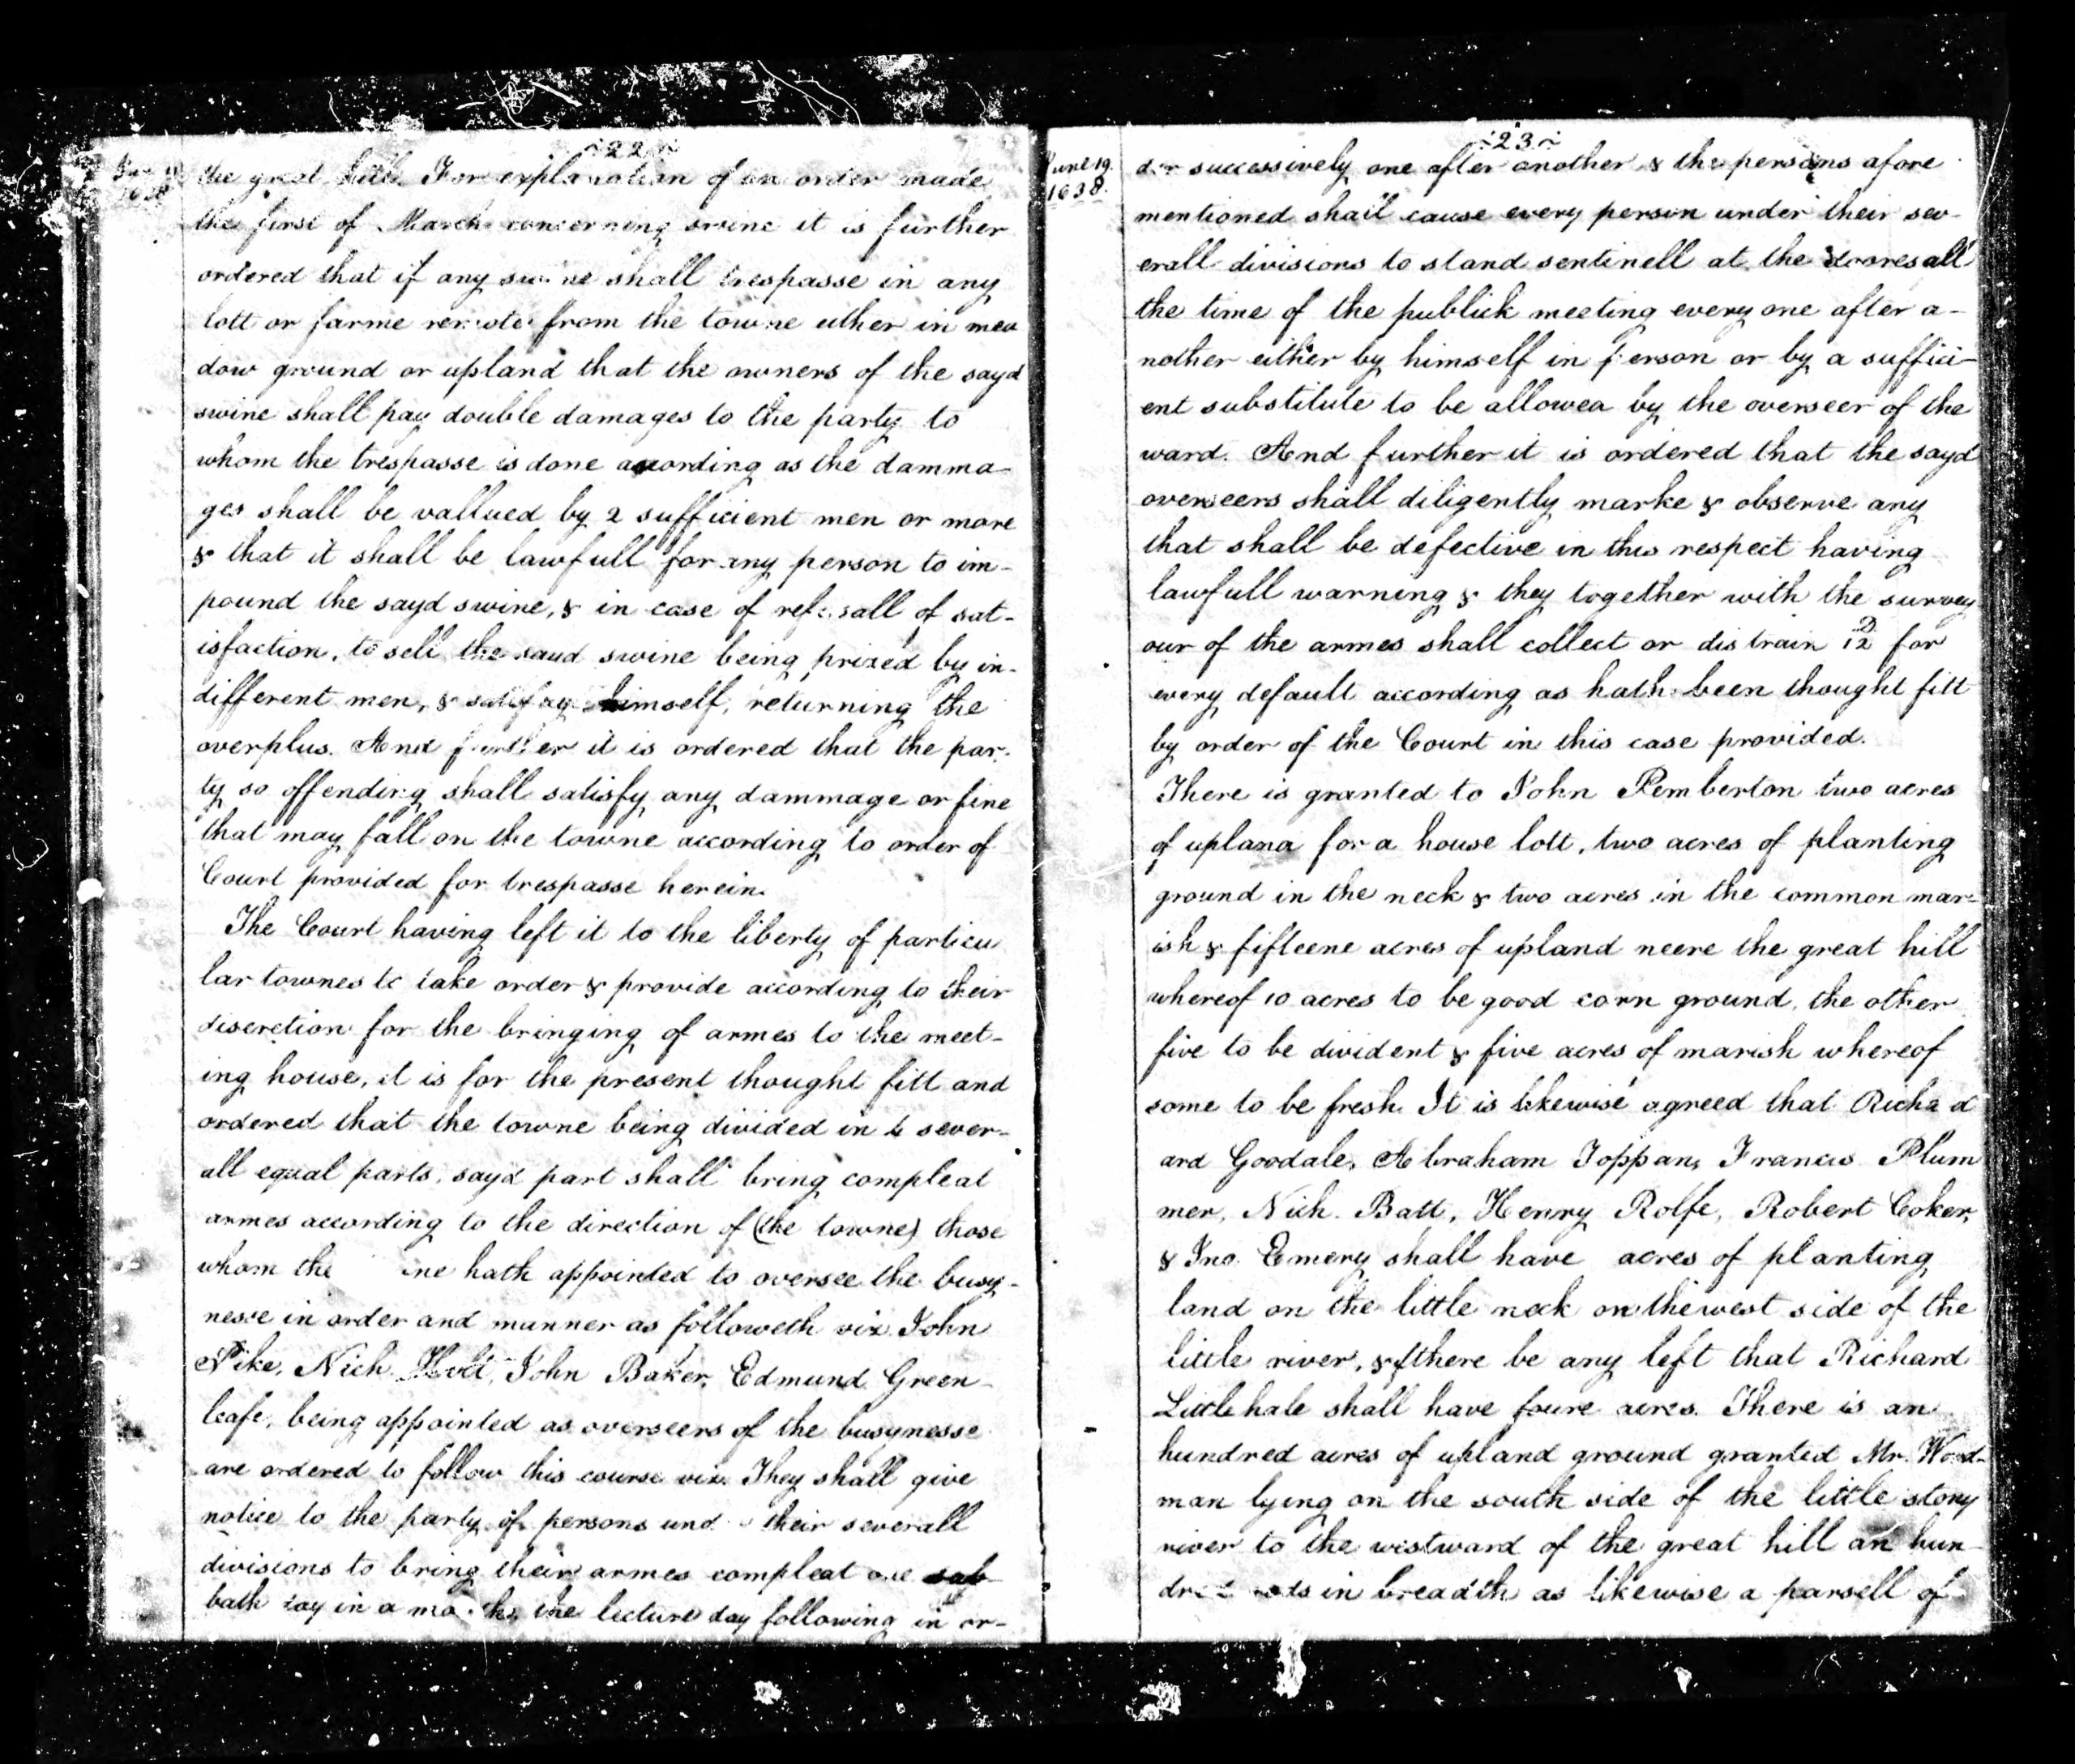 22
June 19
1638
the great hill. For explanation of an order made
the first of March concerning swine it is further
ordered that if any swine shall trespasse in any
lott or farme remote from the towne either in mea
dow ground or upland that the owners of the sayd
swine shall pay double damages to the party to
whom the trespasse is done according as the damma-
ges shall be vallued by 2 sufficient men or more
& that it shall be lawfull for any person to im-
pound the sayd swine, & in case of refusall of sat-
isfaction, to sell the sayd swine being prized by in-
different men, & satisfy himself, returning the
overplus. And further it is ordered that the par-
ty so offending shall satisfy any dammage or fine
that may fall on the towne according to order of
Court provided for trespasse herein.
The Court having left it to the liberty of particu
lar townes to take order & provide according to their
discretion for the bringing of armes to the meet-
ing house, it is for the present thought fitt and
ordered that the towne being divided in 4 sever-
all equal parts, sayd part shall bring compleat
armes according to the direction of (the towne) those
whom the ne hath appointed to oversee the busy-
nesse in order and manner as followeth viz John
Pike, Nich Holt, John Baker, Edmund Green-
leafe, being appointed as overseers of the busynesse
are ordered to follow this course viz. They shall give
notice to the party of persons und their severall
divisions to bring their armes compleat one sab-
bath day in a mo th, the lecture day following in or-
23
June 19.
1638.
der successively one after another & the persons afore
mentioned shall cause every person under their sev-
erall divisions to stand sentinell at the doores all
the time of the publick meeting every one after a-
nother either by himself in person or by a suffici-
ent substitute to be allowed by the overseer of the
ward. And further it is ordered that the sayd
overseers shall diligently marke & observe any
that shall be defective in this respect having
lawfull warning & they together with the survey
our of the armes shall collect or distrain 12D for
every default according as hath been thought fitt
by order of the Court in this case provided.
There is granted to John Pemberton two acres
of upland for a house lott, two acres of planting
ground in the neck & two acres in the common mar-
ish & fifteene acres of upland neere the great hill
whereof 10 acres to be good corn ground, the other
five to be divident & five acres of marish whereof
some to be fresh. It is likewise agreed that Richa d
ard Goodale, Abraham Toppan, Francis Plum
mer, Nich. Batt, Henry Rolfe, Robert Coker,
& Jno. Emery shall have acres of planting
land on the little neck on the west side of the
little river, & if there be any left that Richard
Littlehale shall have foure acres. There is an
hundred acres of upland ground granted Mr. Wood-
man lying on the south side of the little stony
river to the westward of the great hill an hun-
dred rods in breadth as likewise a parsell of